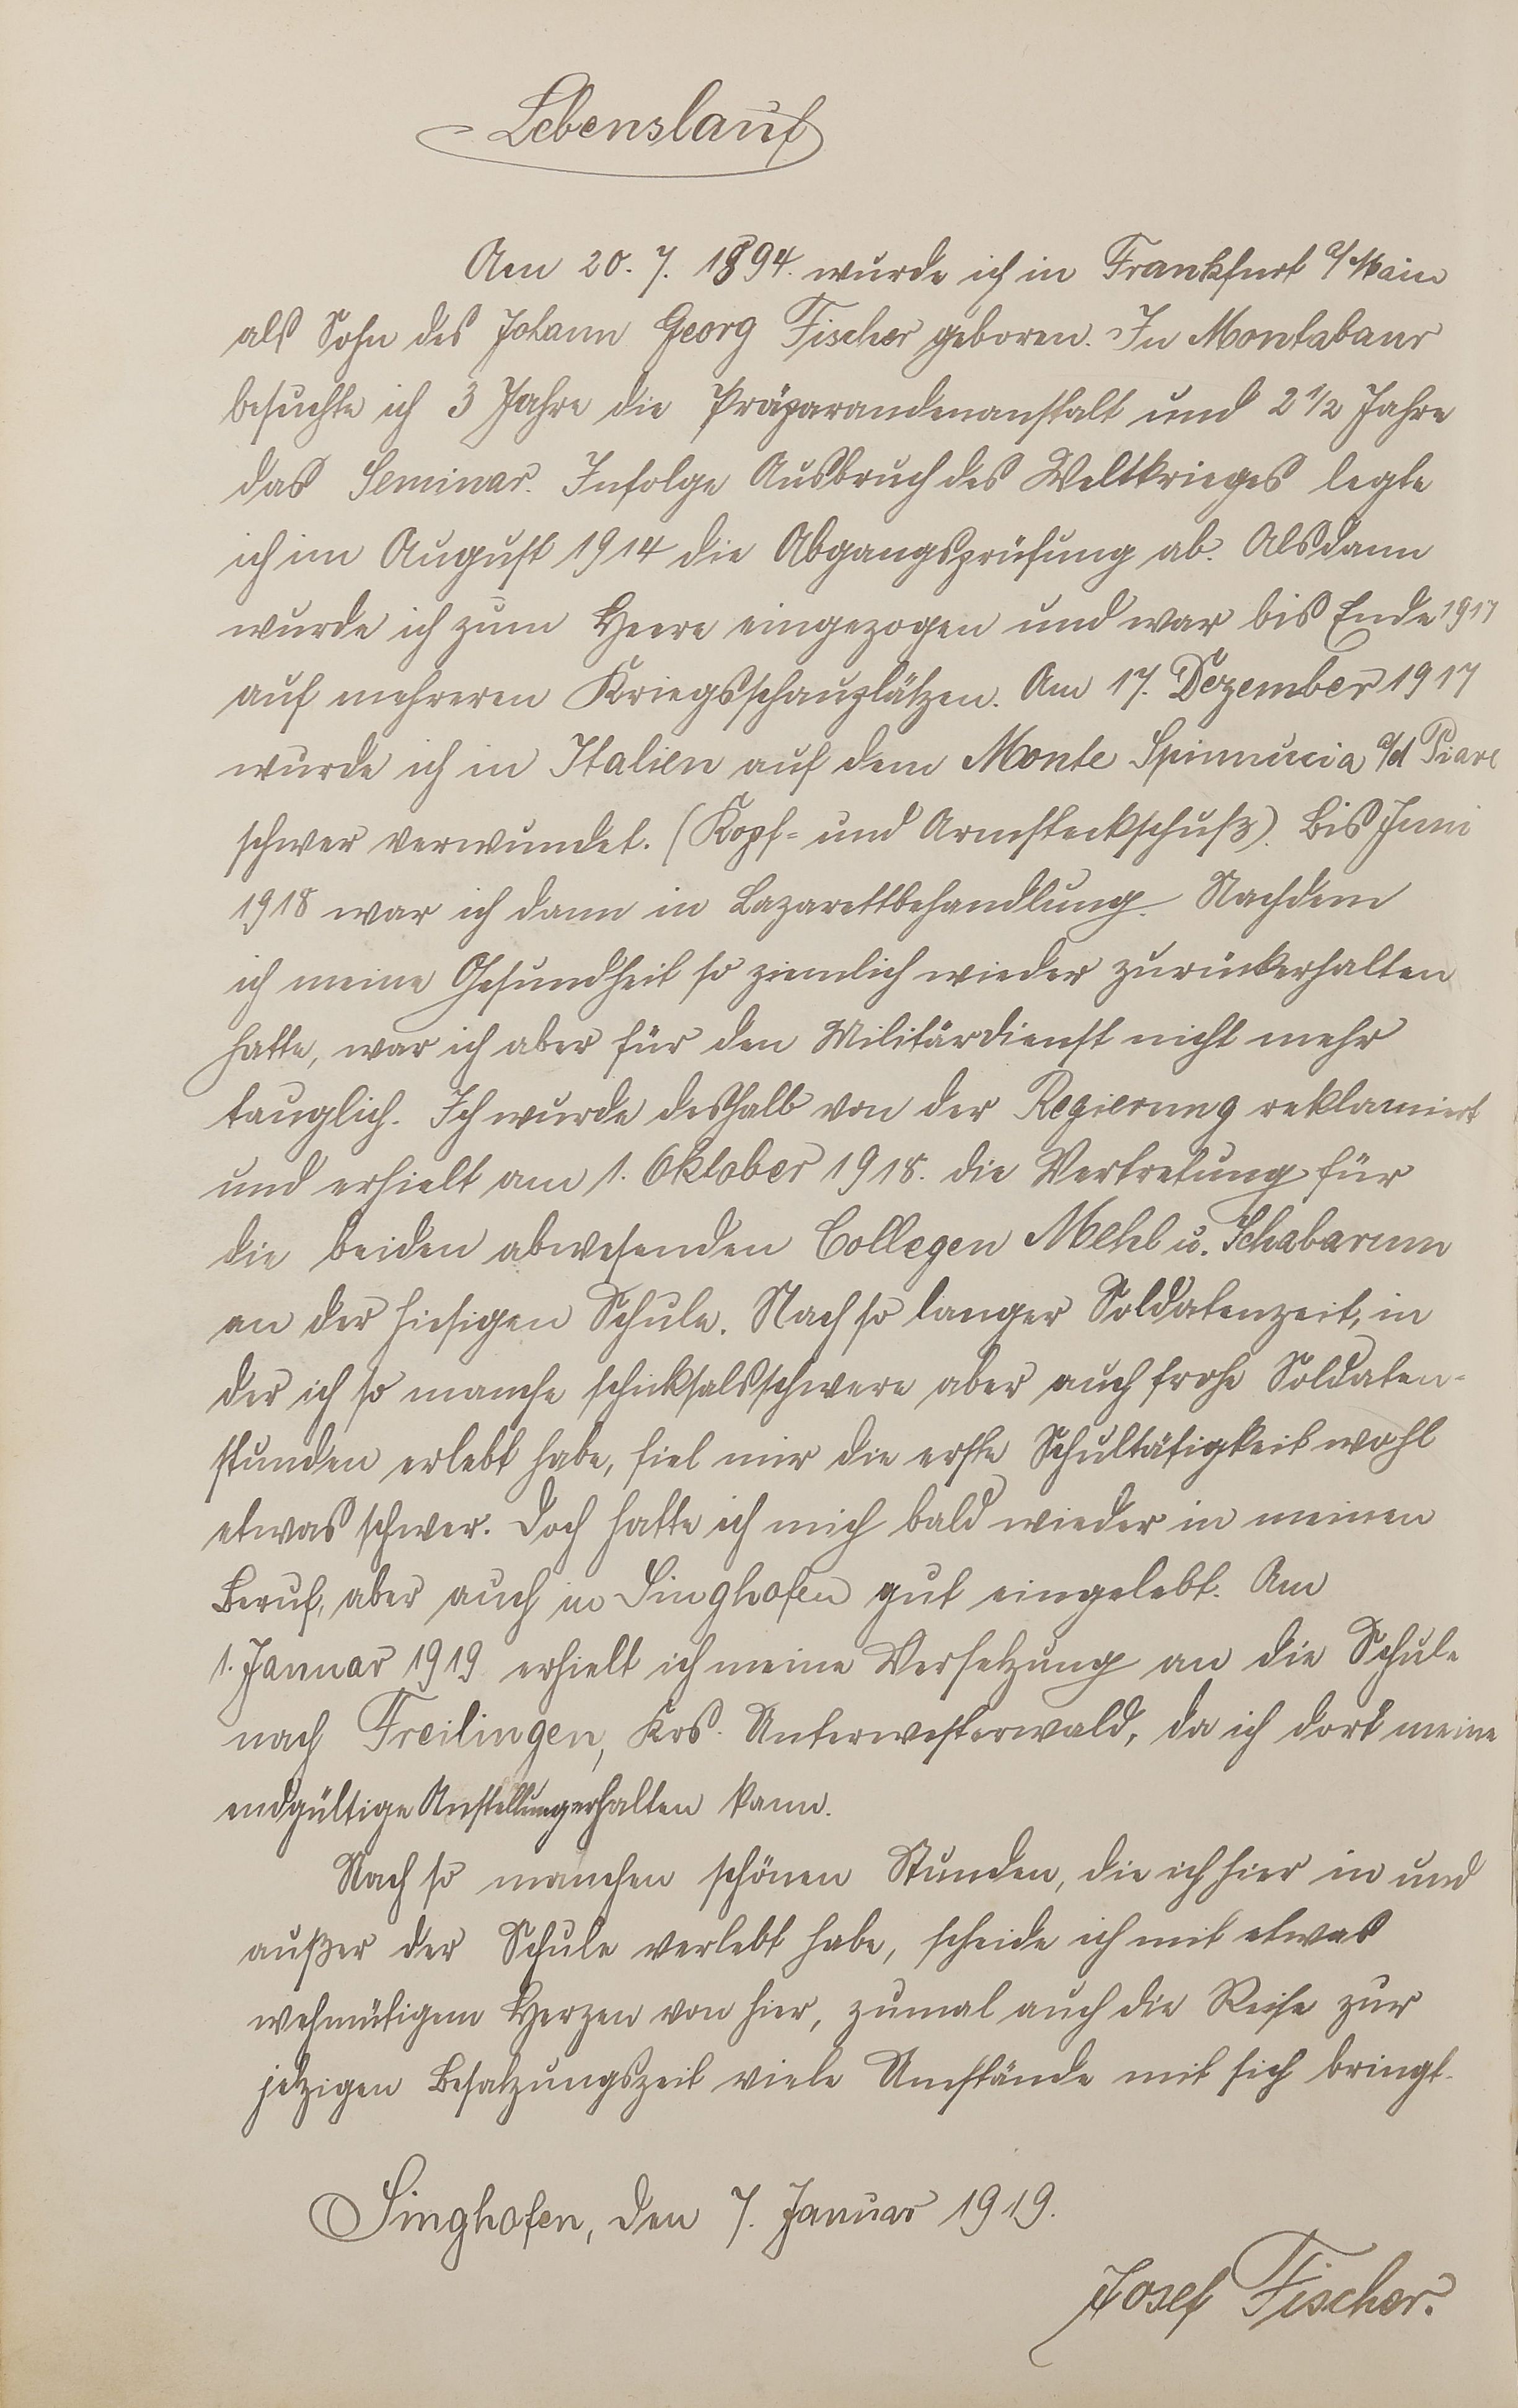 Lebenslauf
Am 20. 7. 1894. wurde ich in Frankfurt a/Main
als Sohn des Johann Georg Fischer geboren. In Montabaur
besuchte ich 3 Jahre die Präparandenanstalt und 2 1/2 Jahre
das Seminar. Infolge Ausbruch des Weltkrieges legte
ich im August 1914 die Abgangsprüfung ab. Alsdann
wurde ich zum Heere eingezogen und war bis Ende 1917
auf mehreren Kriegsschauplätzen. Am 17. Dezember 1917
wurde ich in Italien auf dem Monte Spinnucia a/d Piave
schwer verwundet. (Kopf- und Armsteckschuß). Bis Juni
1918 war ich dann in Lazarettbehandlung. Nachdem
ich meine Gesundheit so ziemlich wieder zurückerhalten
hatte, war ich aber für den Militärdienst nicht mehr
tauglich. Ich wurde deshalb von der Regierung reklamiert
und erhielt am 1. Oktober 1918. die Vertretung für
die beiden abwesenden Collegen Mehl u. Schabarum
an der hiesigen Schule. Nach so langer Soldatenzeit, in
der ich so manche schicksalsschwere aber auch frohe Soldaten-
stunden erlebt habe, fiel mir die erste Schultätigkeit wohl
etwas schwer. Doch hatte ich mich bald wieder in meinen
Beruf, aber auch in Singhofen gut eingelebt. Am
1. Januar 1919 erhielt ich meine Versetzung an die Schule
nach Freilingen, Krs. Unterwesterwald, da ich dort meine
endgültige Anstellung erhalten kann.
Nach so manchen schönen Stunden, die ich hier in und
außer der Schule verlebt habe, scheide ich mit etwas
wehmütigem Herzen von hier, zumal auch die Reise zur
jetzigen Besatzungszeit viele Umstände mit sich bringt.
Singhofen, den 7. Januar 1919.
Josef Fischer.